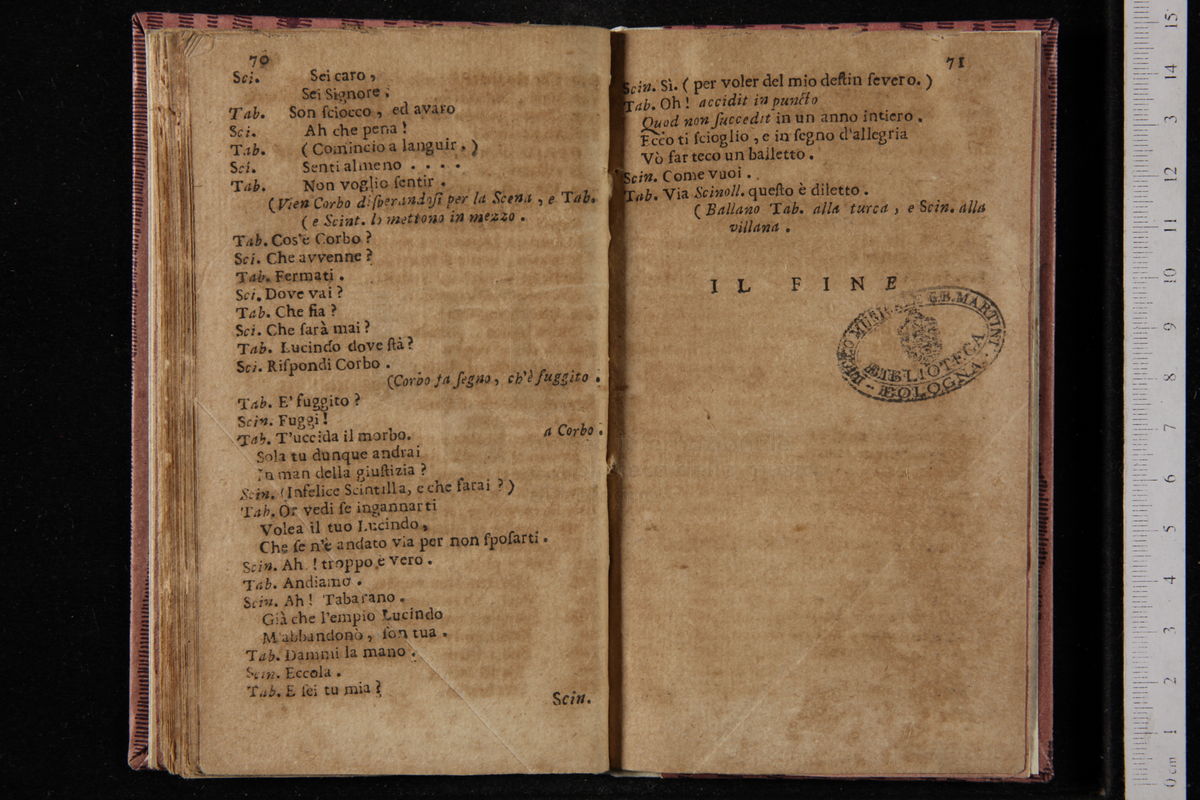 70
Sci. Sei caro,
Sei Signore.
Tab. Son ſciocco, ed avaro
Sci. Ah che pena!
Tab. (Comincio a languir.)
Sci. Senti almeno ....
Tab. Non voglio ſentir.
(Vien Corbo diſperandoſi per la Scena, e Tab.
(e Scint. lo mettono in mezzo.
Tab. Cos'è Corbo?
Sci. Che avvenne?
Tab. Fermati.
Sci. Dove vai?
Tab. Che fia?
Sci. Che ſarà mai?
Tab. Lucindo dove ſtà?
Sci. Riſpondi Corbo.
(Corbo fa ſegno, ch'è fuggito.
Tab. E' fuggito?
Scin. Fuggì!
Tab. T'uccida il morbo. a Corbo.
Sola tu dunque andrai
In man della giuſtizia?
Scin. (Infelice Scintilla, e che farai?)
Tab. Or vedi ſe ingannarti
Volea il tuo Lucindo,
Che ſe n'è andato via per non ſpoſarti.
Scin. Ah! troppo è vero.
Tab. Andiamo.
Scin. Ah! Tabarano.
Già che l'empio Lucindo
M'abbandonò, ſon tua.
Tab. Dammi la mano.
Scin. Eccola.
Tab. E ſei tu mia?
Scin.
71
Scin. Sì. (per voler del mio deſtin ſevero.)
Tab. Oh! accidit in puncto
Quod non ſuccedit in un anno intiero.
Ecco ti ſcioglio, e in ſegno d'allegria
Vò far teco un balletto.
Scin. Come vuoi.
Tab. Via Scinoll. queſto è diletto.
(Ballano Tab. alla turca, e Scin. alla
villana.
IL FINE
G.B. MARTINI
BIBLIOTECA
BOLOGNA
15
14
13
12
11
10
9
8
7
6
5
4
3
2
1
0 cm